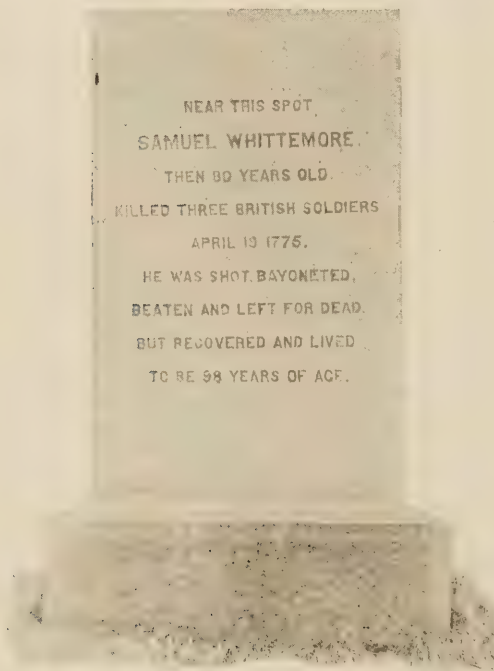 NEAR THIS SPOT
SAMUEL WHITTEMORE.
THEN 80 YEARS OLD.
KILLED THREE BRITISH SOLDIERS
APRIL 19 1775.
HE WAS SHOT. BAYONETED,
BEATEN AND LEFT FOR DEAD.
BUT RECOVERED AND LIVED
TO BE 98 YEARS OF AGE.